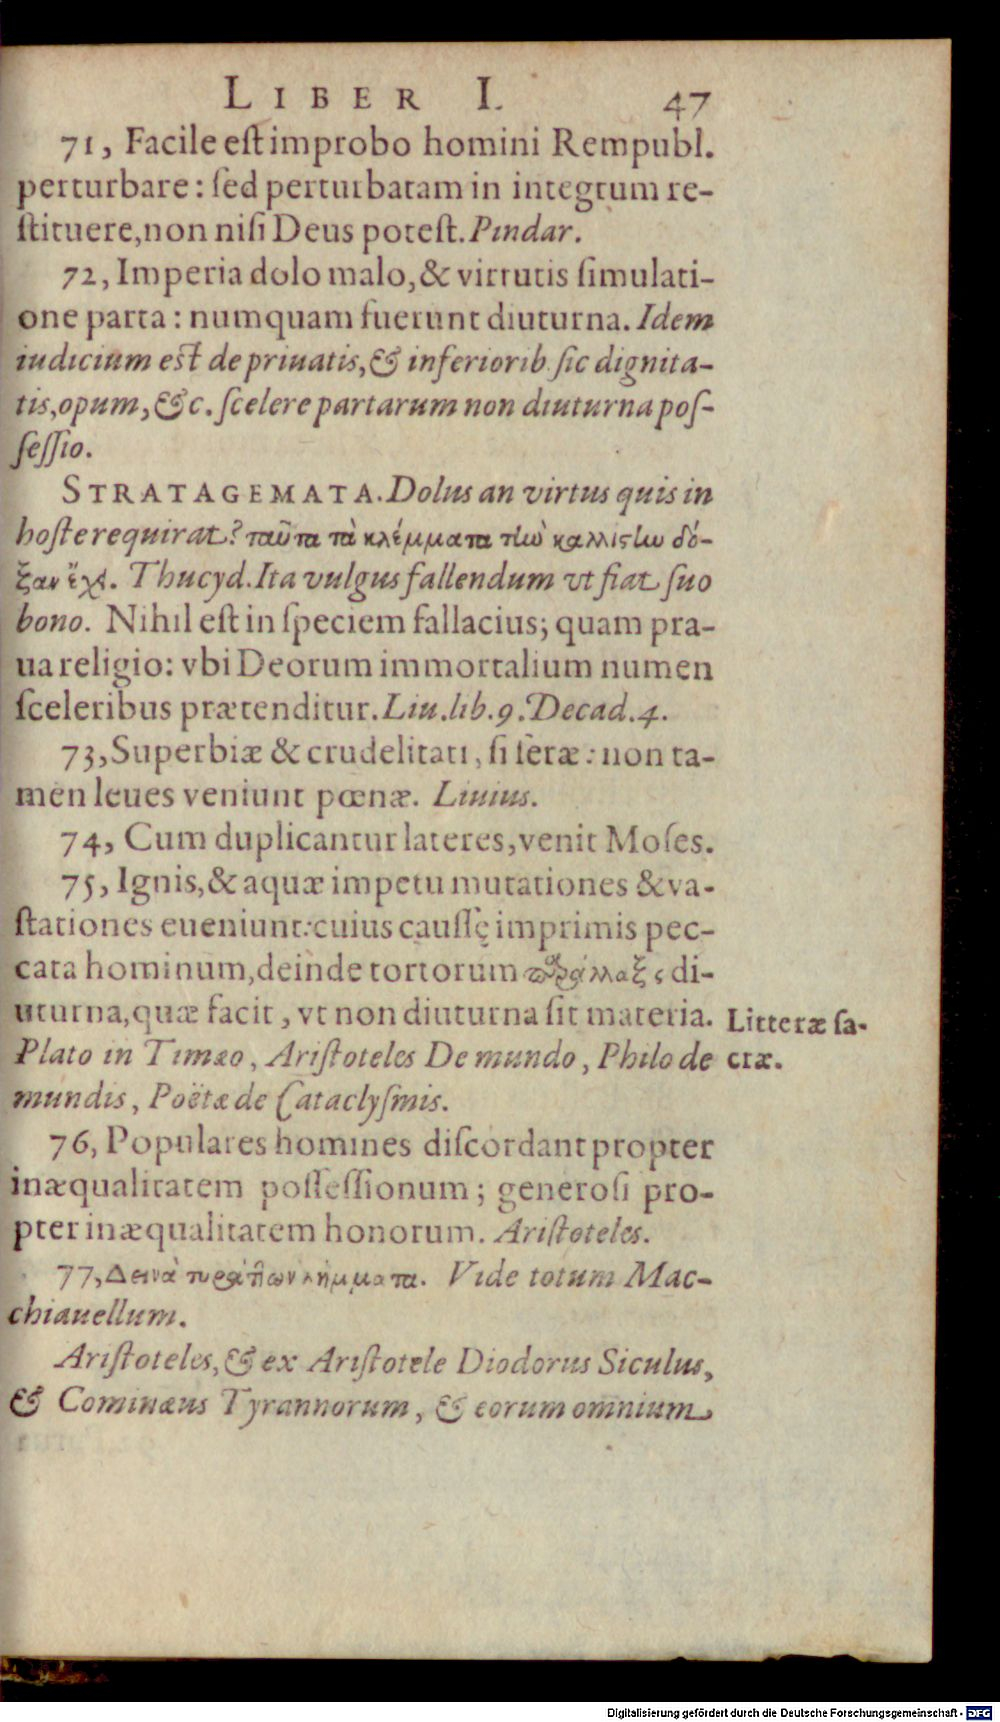 LIBER I. 47
71, Facile eſt improbo homini Rempubl.
perturbare: ſed perturbatam in integrum re-
ſtituere, non niſi Deus poteſt. Pindar.
72, Imperia dolo malo, & virtutis ſimulati-
one parta: numquam fuerunt diuturna. Idem
iudicium eſt de priuatis, & inferiorib. ſic dignita-
tis, opum, &c. ſcelere partarum non diuturna poſ-
ſeſſio.
STRATAGEMATA. Dolus an virtus quis in
hoſte requirat? ταῦτα τὰ κλέμματα τὴν καλλίστην δό-
ξαν ἔχει. Thucyd. Ita vulgus fallendum vt fiat ſuo
bono. Nihil eſt in ſpeciem fallacius; quam pra-
ua religio: vbi Deorum immortalium numen
ſceleribus prætenditur. Liu. lib. 9. Decad. 4.
73, Superbiæ & crudelitati, ſi ſeræ: non ta-
men leues veniunt pœnæ. Liuius.
74, Cum duplicantur lateres, venit Moſes.
75, Ignis, & aquæ impetu mutationes & va-
ſtationes eueniunt: cuius cauſſę imprimis pec-
cata hominum, deinde tortorum παράλλαξς di-
uturna, quæ facit, vt non diuturna ſit materia.
Litteræ ſa-
cræ.
Plato in Timæo, Ariſtoteles De mundo, Philo de
mundis, Poëtæ de Cataclyſmis.
76, Populares homines diſcordant propter
inæqualitatem poſſeſſionum; generoſi pro-
pter inæqualitatem honorum. Ariſtoteles.
77, Δεινὰ τυράννων λήμματα. Vide totum Mac-
chiauellum.
Ariſtoteles, & ex Ariſtotele Diodorus Siculus,
& Cominæus Tyrannorum, & eorum omnium
Digitalisierung gefördert durch die Deutsche Forschungsgemeinschaft - DFG